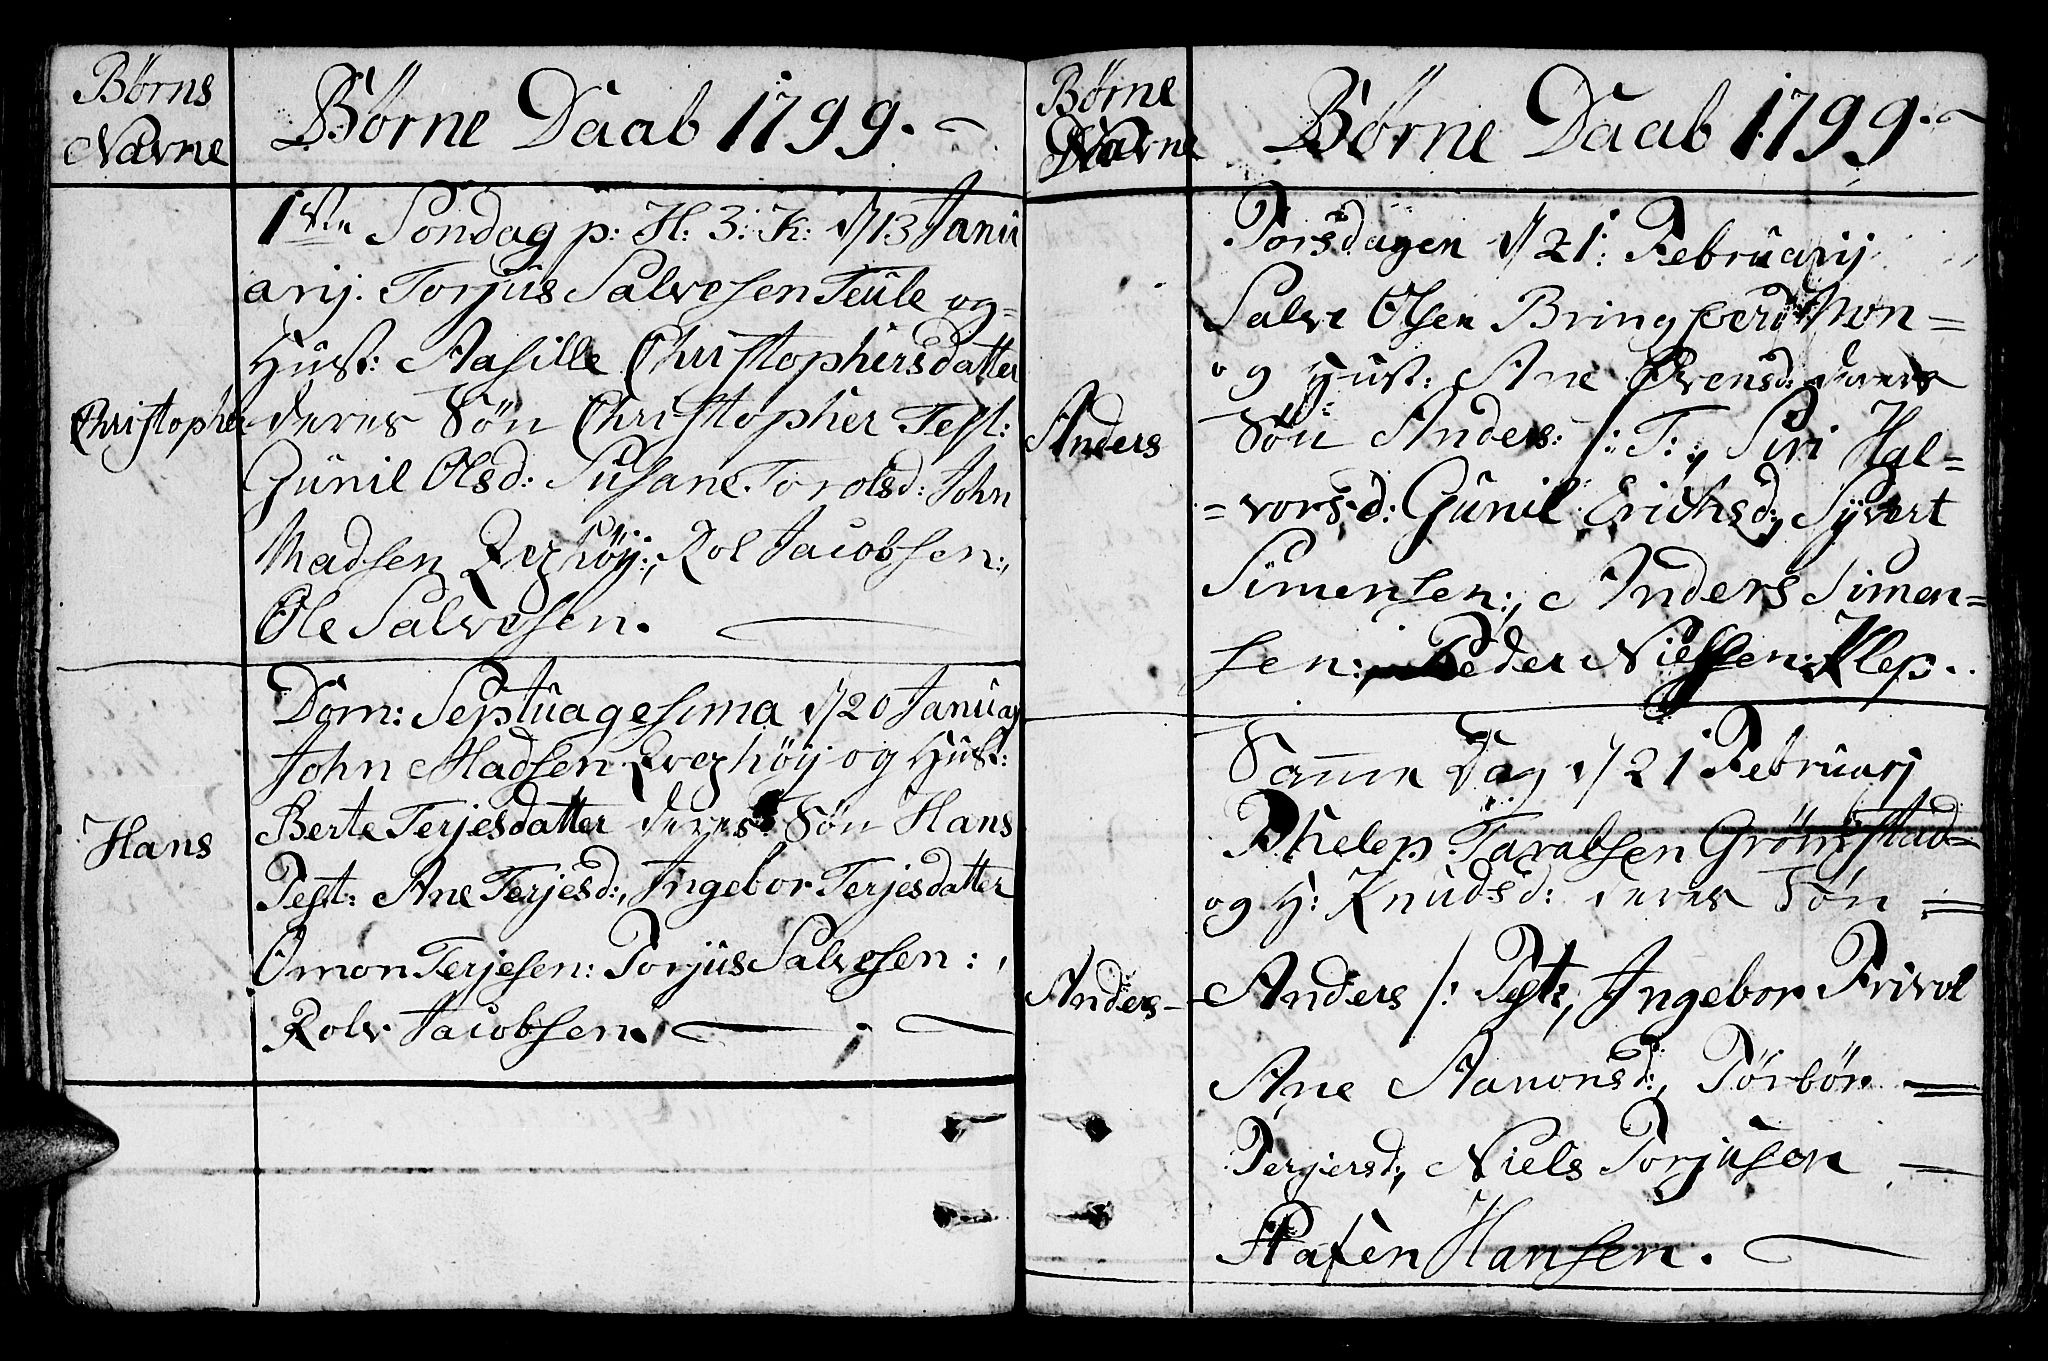 Børns
Navne
Børne Daab 1799.
1ste Søndag p: H: 3: K: d/13 Janu
arij. Torjus Salvesen Teule og
Hust: Aasille Christophersdatter
Christopher
deres Søn Christopher Test:
Gunil Olsd: Susane Torolsd: John
Madsen Qveghöÿ:, Rol Jacobsen:,
Ole Salvesen.
Dom: Septuagesima d/20 Januar
John Madsen Qveghöÿ og Hust:
Hans
Berte Terjesdatter deres Søn Hans
Test: Ane Terjesd:, Ingebor Terjesdatter
Omon Terjesen: Torjus Salvesen:,
Rolv Jacobsen.
Børne
Navne
Børne Daab 1799.
Torsdagen d/21: Februarij
Salve Olsen Bringsverd Mon=
og Hust: Ane Evensd: deres
Anders
Søn Anders: /: T:, Siri Hal=
=vorsd: Gunil Erichsd:, Syvert
Simensen:, Anders Simen=
sen:, Peder Nielsen: Klep.
Samme Dag d/21 Februarj
Phelep: Taralsen Grømstad=
og H: Knudsd: deres Søn =
Anders
Anders /: Test:, Ingebor Frivol
Ane Aanonsd:, Törbör =
Terjersd:, Niels Torjusen =
Stafen Hansen.